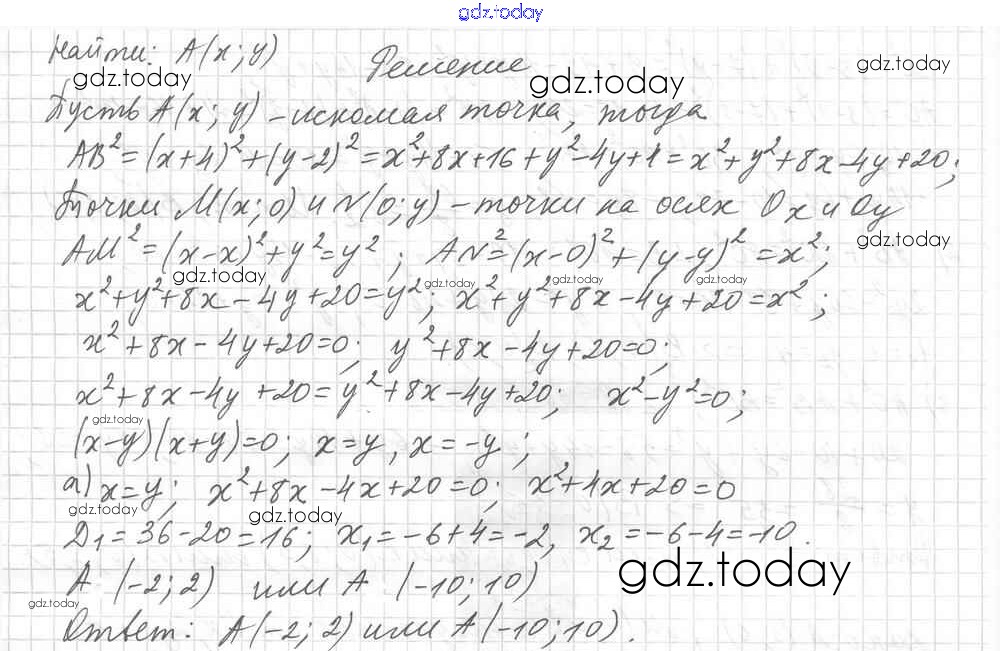 gdz.today
Найти: A(x; y)
Решение
gdz.today
gdz.today
gdz.today
Пусть A(x; y) – искомая точка, тогда
AB² = (x+4)² + (y-2)² = x²+8x+16+y²-4y+1 = x²+y²+8x-4y+20;
Точки M(x; 0) и N(0; y) – точки на осях Ox и Oy
gdz.today
AM² = (x-x)² + y² = y²; AN² = (x-0)² + (y-y)² = x²;
gdz.today
gdz.today
gdz.today
x²+y²+8x-4y+20=y²; x²+y²+8x-4y+20=x²;
x²+8x-4y+20=0; y²+8x-4y+20=0;
x²+8x-4y+20=y²+8x-4y+20; x²-y²=0;
gdz.today
(x-y)(x+y)=0; x=y, x=-y;
а) x=y; x²+8x-4x+20=0; x²+4x+20=0
gdz.today
gdz.today
D₁=36-20=16; x₁=-6+4=-2, x₂=-6-4=-10.
gdz.today
A (-2; 2) или A (-10; 10)
gdz.today
Ответ: A(-2; 2) или A(-10; 10).